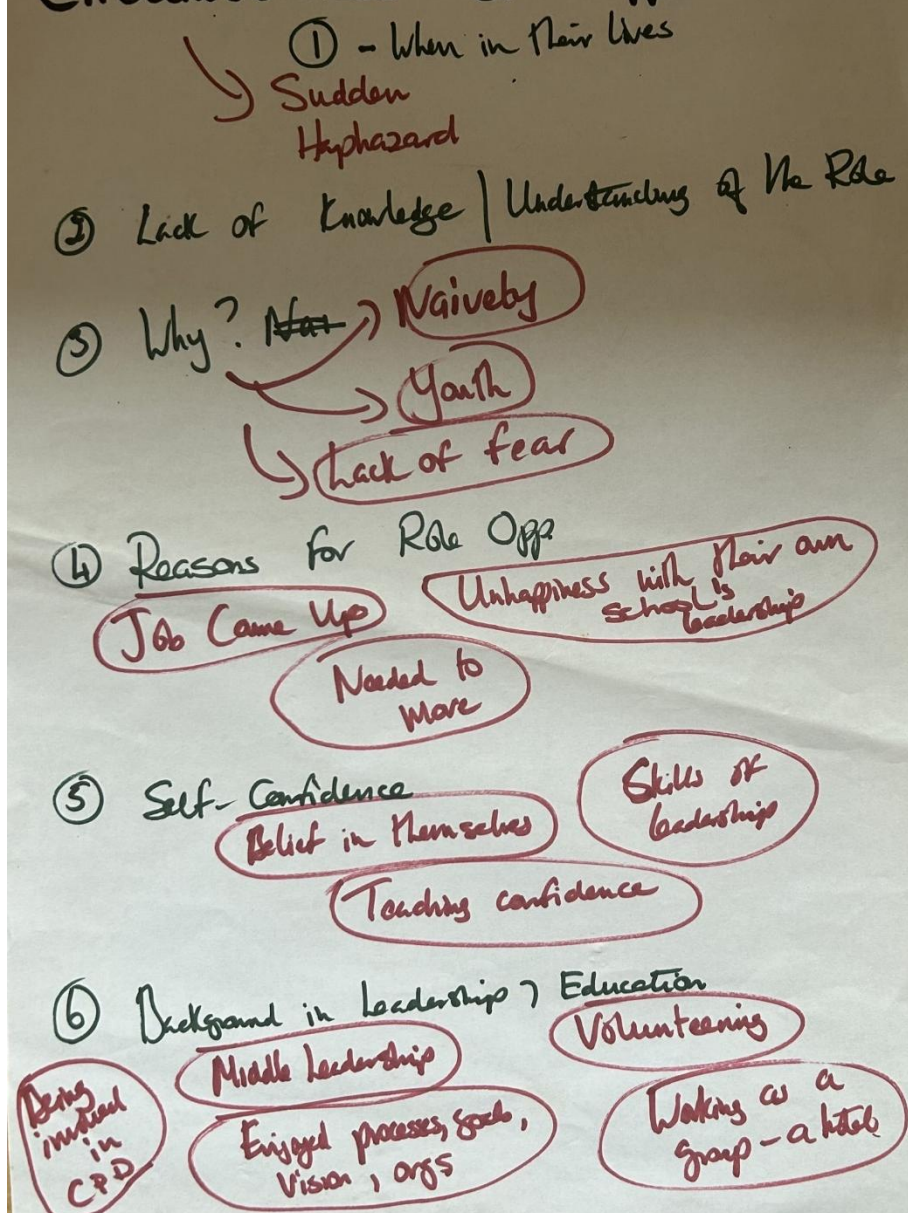 ① - When in their lives
Sudden
Haphazard
② Lack of Knowledge / Understanding of the Role
③ Why?
Naivety
Youth
Lack of fear
④ Reasons for Role Opp.
Job Came Up
Unhappiness with their own
school's
leadership
Needed to
move
⑤ Self-Confidence
Belief in themselves
Skills of
leadership
Teaching confidence
⑥ Background in Leadership, Education
Middle Leadership
Volunteering
Being
involved
in
CPD
Enjoyed processes, goals,
vision, orgs
Working as a
group - a hotel